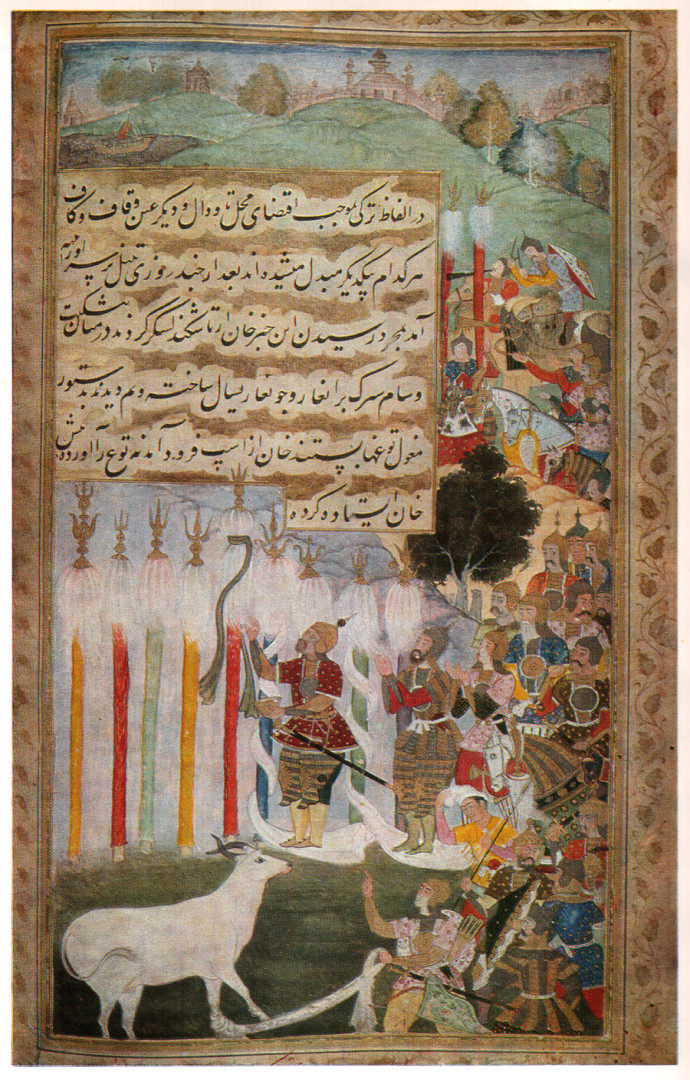 در الفاظ ترکی بموجب اقضای محل تا و دال و دیکر عین و قاف و کاف
هر کدام بیکدیکر مبدل میشده اند بعد از چند روزی تنبل بر سر اورا تپه
آمد بمجرد رسیدن این خبر خان از تاشکند لشکر کردند در میان بشکت
و سام سیرک برانغار و جوانغار یسال ساخته و یم دیدند بدستور
مغول توغها بستند خان از اسپ فرود آمد نه توغ را آورده پیش
خان ایستاده کرده